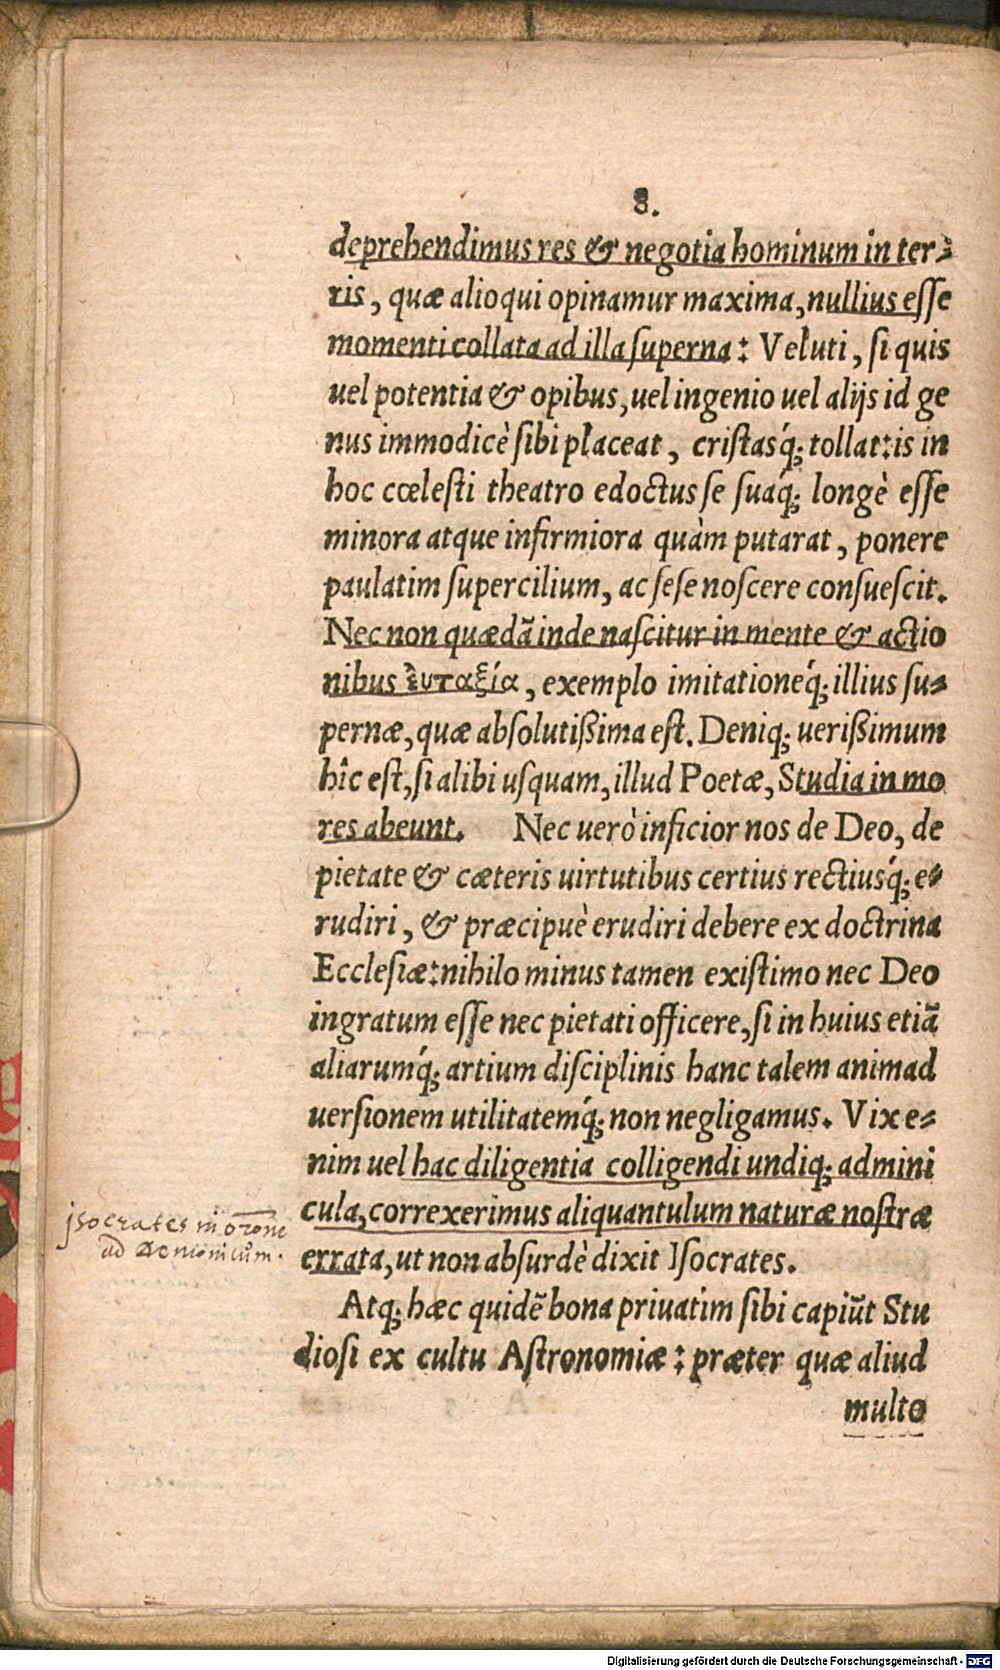 8.
deprehendimus res & negotia hominum in ter⸗
ris, quæ alioqui opinamur maxima, nullius eſſe
momenti collata ad illa ſuperna: Veluti, ſi quis
uel potentia & opibus, uel ingenio uel alijs id ge
nus immodicè ſibi placeat, criſtasq́; tollat: is in
hoc cœleſti theatro edoctus ſe ſuaq́; longè eſſe
minora atque infirmiora quàm putarat, ponere
paulatim ſupercilium, ac ſeſe noſcere conſueſcit.
Nec non quædã inde naſcitur in mente & actio
nibus ἐυταξία, exemplo imitationeq́; illius ſu⸗
pernæ, quæ abſolutißima eſt. Deniq; uerißimum
hîc eſt, ſi alibi uſquam, illud Poetæ, Studia in mo
res abeunt. Nec uerò inficior nos de Deo, de
pietate & cæteris uirtutibus certius rectiusq́; e⸗
rudiri, & præcipuè erudiri debere ex doctrina
Eccleſiæ: nihilo minus tamen exiſtimo nec Deo
ingratum eſſe nec pietati officere, ſi in huius etiã
aliarumq́; artium diſciplinis hanc talem animad
uerſionem utilitatemq́; non negligamus. Vix e⸗
nim uel hac diligentia colligendi undiq; admini
cula, correxerimus aliquantulum naturæ noſtræ
errata, ut non abſurdè dixit Iſocrates.
Isocrates in orone
ad Demonicum.
Atq; hæc quidẽ bona priuatim ſibi capiũt Stu
dioſi ex cultu Aſtronomiæ: præter quæ aliud
multo
Digitalisierung gefördert durch die Deutsche Forschungsgemeinschaft - DFG